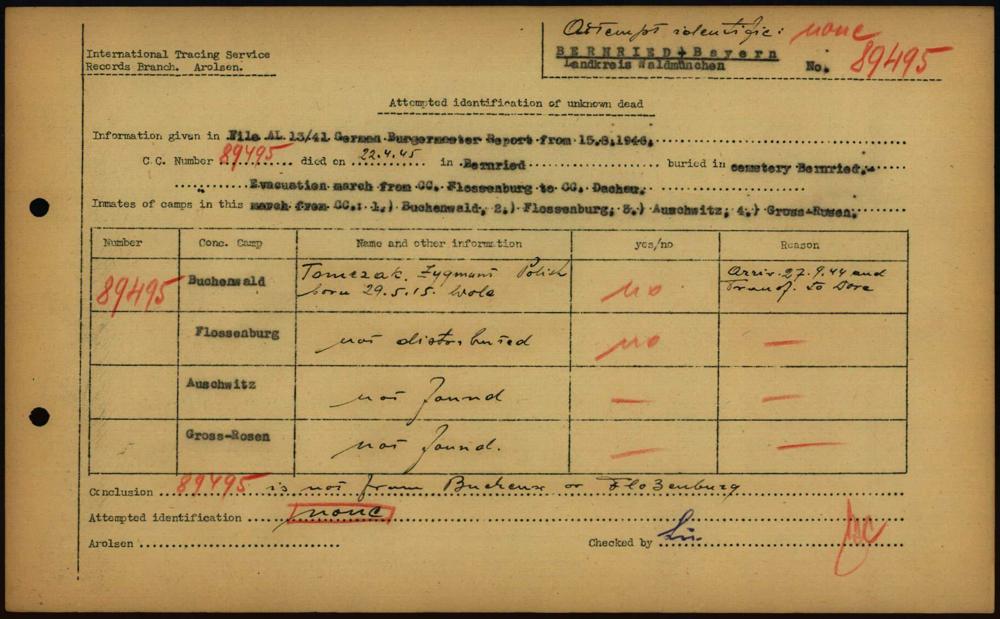 Attempt identific: none
International Tracing Service
Records Branch. Arolsen.
BERNRIED+Bayern
Landkreis Waldmünchen
No. 89495
Attempted identification of unknown dead
Information given in File AL 13/41 German Burgermester Report from 15.8.1946.
C.C. Number 89495 died on 22.4.45 in Bernried buried in cemetery Bernried,
Evacuation march from CC. Flossenburg to CC. Dachau,
Inmates of camps in this march from CC.: 1.) Buchenwald, 2.) Flossenburg, 3.) Auschwitz, 4.) Gross-Rosen,
Number Conc. Camp Name and other information yes/no Reason
89495 Buchenwald Tomczak, Zygmunt Polish no Arriv. 27.9.44 and
born 29.5.15. Wola Transf. to Dora
Flossenburg not distributed no —
Auschwitz not found — —
Gross-Rosen not found. — —
Conclusion 89495 is not from Buchenw or Floßenburg
Attempted identification none
Arolsen Checked by